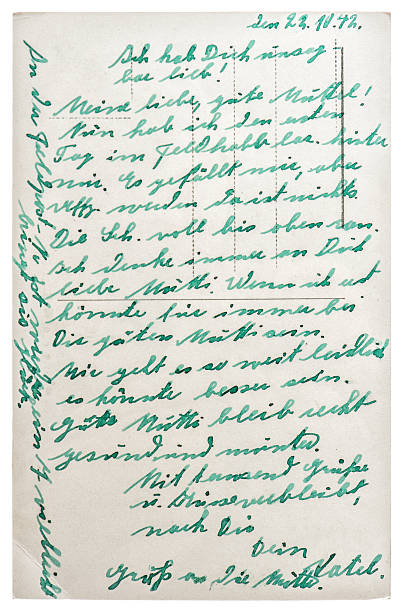 den 22.10.42.
Ich hab Dich unsag-
bar lieb!
Meine liebe, gute Muttel!
Nun hab ich den ersten
Tag im Feld hinter
mir. Es gefällt mir, aber
Uffz. werden da ist nichts.
Die Sch. voll bis oben ran.
Ich denke immer an Dich
liebe Mutti. Wenn ich erst
könnte für immer bei
Dir guten Mutti sein.
Mir geht es so weit leidlich
es könnte besser sein.
Gute Mutti bleib recht
gesund und munter.
Mit tausend Grüße
u. Küsse verbleibt,
nach Dir
Dein
Gruß an die Mutter.
An der
bringt sie Glück.